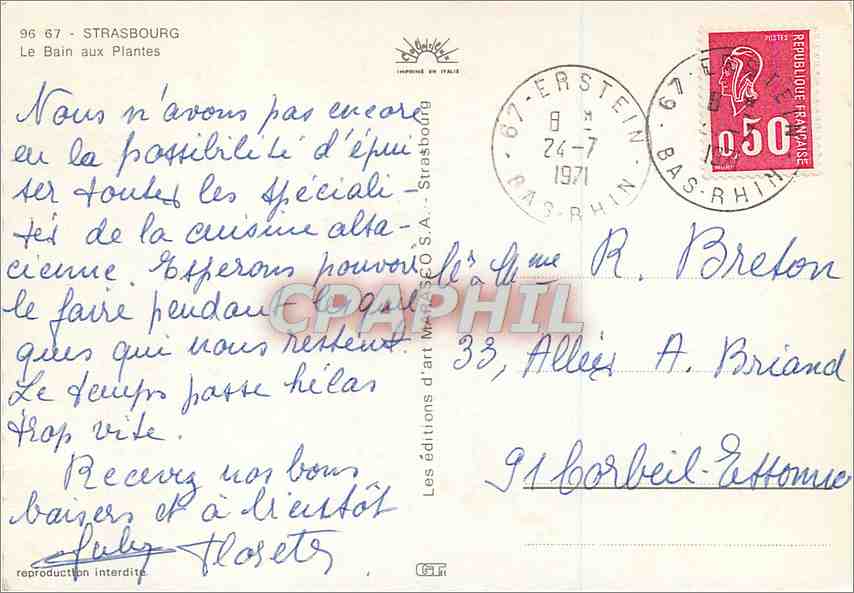 96 67 - STRASBOURG
Le Bain aux Plantes
IMPRIMÉ EN ITALIE
Nous n'avons pas encore
eu la possibilité d'épui
ser toutes les spéciali-
tés de la cuisine alsa-
cienne. Esperons pouvoir
le faire pendant les quel
ques qui nous restent.
Le temps passe hélas
trop vite.
Recevez nos bons
baisers et à bientôt
reproduction interdite
Les éditions d'art MARASCO S.A. - Strasbourg
CPAPHIL
67 - ERSTEIN
8
24-7
1971
BAS-RHIN
67 - ERSTEIN
BAS-RHIN
POSTES
REPUBLIQUE FRANÇAISE
0,50
Mr & Mme R. Breton
33, Allées A. Briand
91 Corbeil-Essonnes